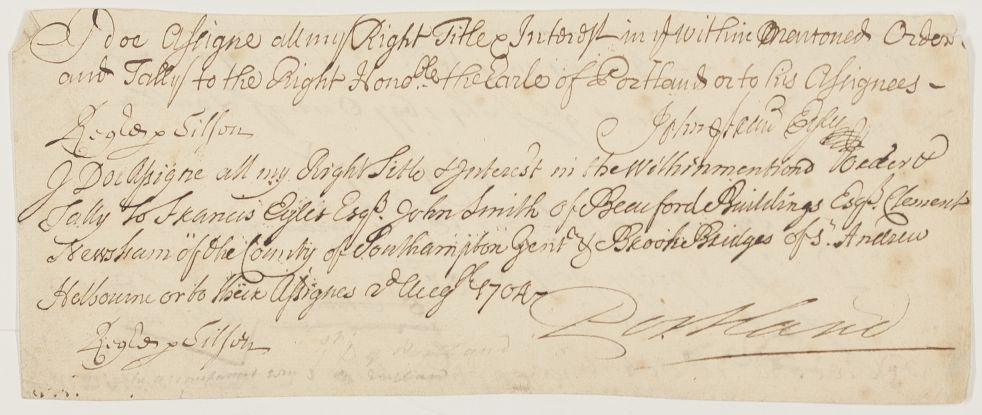 I doe Assigne all my Right Title & Interest in ye within mentoned Order
and Tally to the Right Honoble the Earle of Portland or to his Assignees -
John
I Doe Assigne all my Right Title & Interest in the Within mentiond Order &
Tally To Francis Eyles Esqr. John Smith of Beauford Buildings Esqr. Clement
Newsham of the County of Southampton Gentn & Brook Bridges of St. Andrew
Holbourne or to their Assignes 2d Augst 1704
Portland